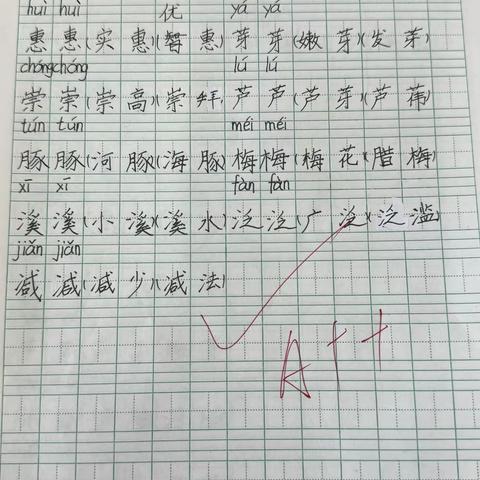 huì huì 优 yá yá
惠惠(实惠)(智惠)芽芽(嫩芽)(发芽)
chóngchóng lú lú
崇崇(崇高)(崇拜)芦芦(芦芽)(芦苇)
tún tún méi méi
豚豚(河豚)(海豚)梅梅(梅花)(腊梅)
xī xī fàn fàn
溪溪(小溪)(溪水)泛泛(广泛)(泛滥)
jiǎn jiǎn
减减(减少)(减法)
A++